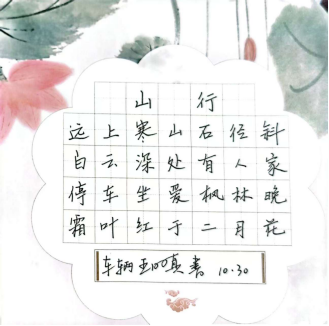 山行
远上寒山石径斜
白云深处有人家
停车坐爱枫林晚
霜叶红于二月花
车辆 书 10.30